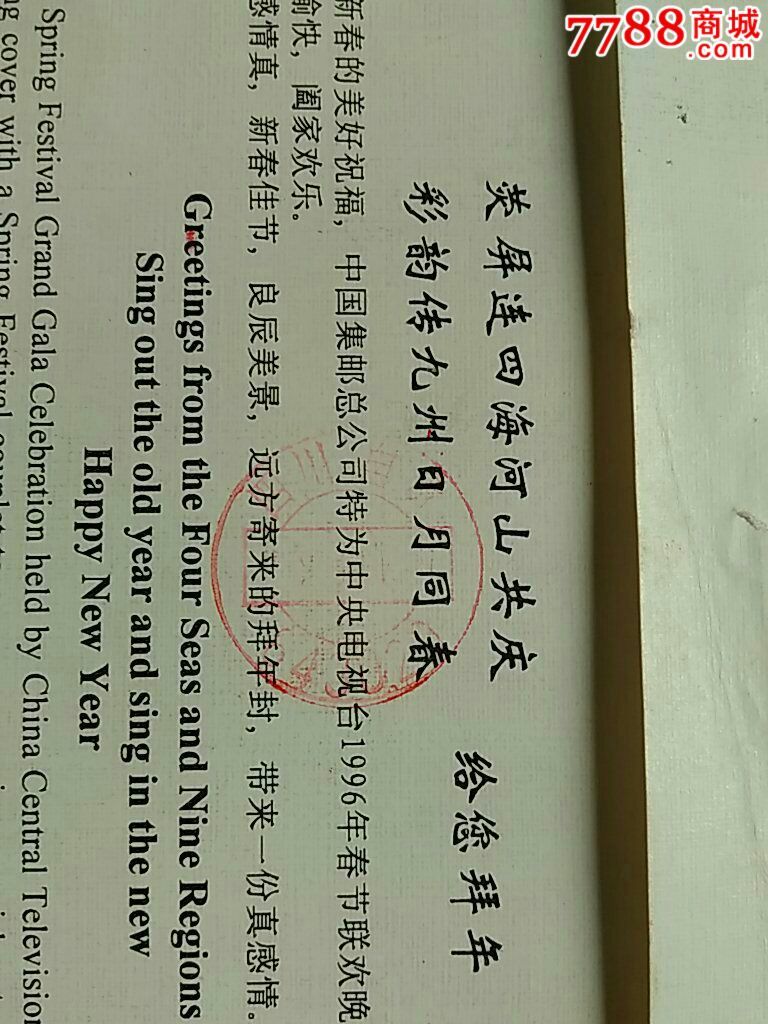 7788商城
.com
荧屏连四海河山共庆
彩韵传九州日月同春
给您拜年
新春的美好祝福，中国集邮总公司特为中央电视台1996年春节联欢晚
愉快，阖家欢乐。
感情真，新春佳节，良辰美景，远方寄来的拜年封，带来一份真感情。
Greetings from the Four Seas and Nine Regions
Sing out the old year and sing in the new
Happy New Year
Spring Festival Grand Gala Celebration held by China Central Television
cover with a Spring Festival